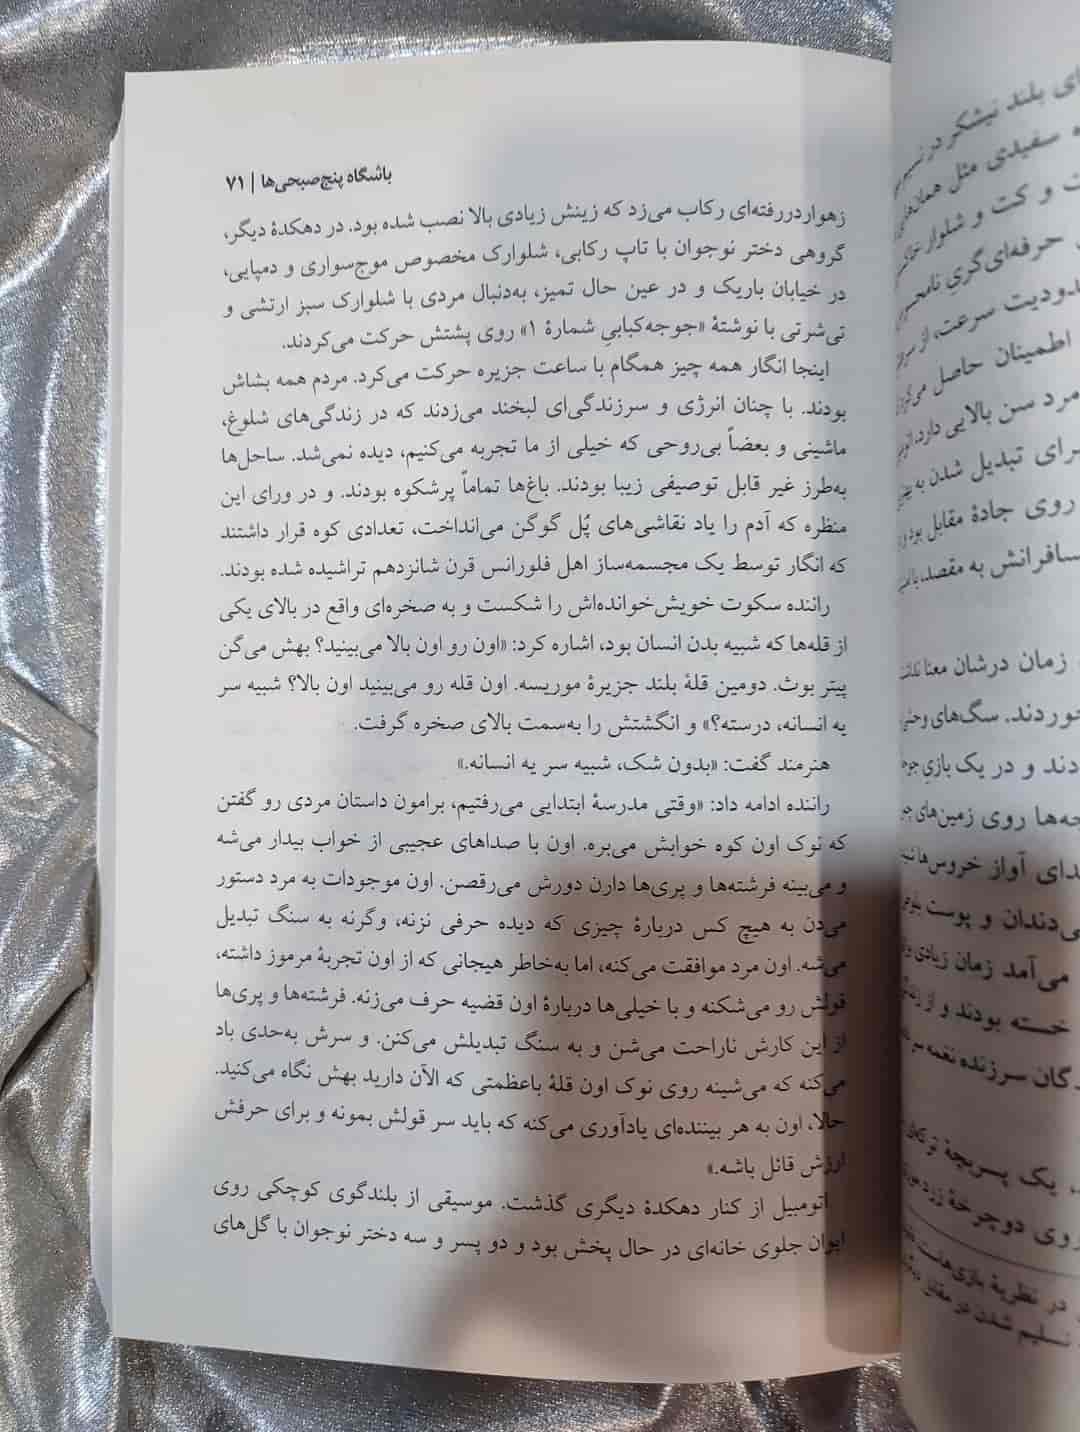 باشگاه پنج‌صبحی‌ها | ۷۱
زهواردررفته‌ای رکاب می‌زد که زینش زیادی بالا نصب شده بود. در دهکدهٔ دیگر،
گروهی دختر نوجوان با تاپ رکابی، شلوارک مخصوص موج‌سواری و دمپایی،
در خیابان باریک و در عین حال تمیز، به‌دنبال مردی با شلوارک سبز ارتشی و
تی‌شرتی با نوشتهٔ «جوجه‌کبابیِ شمارهٔ ۱» روی پشتش حرکت می‌کردند.
اینجا انگار همه چیز همگام با ساعت جزیره حرکت می‌کرد. مردم همه بشاش
بودند. با چنان انرژی و سرزندگی‌ای لبخند می‌زدند که در زندگی‌های شلوغ،
ماشینی و بعضاً بی‌روحی که خیلی از ما تجربه می‌کنیم، دیده نمی‌شد. ساحل‌ها
به‌طرز غیر قابل توصیفی زیبا بودند. باغ‌ها تماماً پرشکوه بودند. و در ورای این
منظره که آدم را یاد نقاشی‌های پُل گوگن می‌انداخت، تعدادی کوه قرار داشتند
که انگار توسط یک مجسمه‌ساز اهل فلورانس قرن شانزدهم تراشیده شده بودند.
راننده سکوت خویش‌خوانده‌اش را شکست و به صخره‌ای واقع در بالای یکی
از قله‌ها که شبیه بدن انسان بود، اشاره کرد: «اون رو اون بالا می‌بینید؟ بهش می‌گن
پیتر بوث. دومین قلهٔ بلند جزیرهٔ موریسه. اون قله رو می‌بینید اون بالا؟ شبیه سر
یه انسانه، درسته؟» و انگشتش را به‌سمت بالای صخره گرفت.
هنرمند گفت: «بدون شک، شبیه سر یه انسانه.»
راننده ادامه داد: «وقتی مدرسهٔ ابتدایی می‌رفتیم، برامون داستان مردی رو گفتن
که نوک اون کوه خوابش می‌بره. اون با صداهای عجیبی از خواب بیدار می‌شه
و می‌بینه فرشته‌ها و پری‌ها دارن دورش می‌رقصن. اون موجودات به مرد دستور
می‌دن به هیچ کس دربارهٔ چیزی که دیده حرفی نزنه، وگرنه به سنگ تبدیل
می‌شه. اون مرد موافقت می‌کنه، اما به‌خاطر هیجانی که از اون تجربهٔ مرموز داشته،
قولش رو می‌شکنه و با خیلی‌ها دربارهٔ اون قضیه حرف می‌زنه. فرشته‌ها و پری‌ها
از این کارش ناراحت می‌شن و به سنگ تبدیلش می‌کنن. و سرش به‌حدی باد
می‌کنه که می‌شینه روی نوک اون قلهٔ باعظمتی که الآن دارید بهش نگاه می‌کنید.
حالا، اون به هر بیننده‌ای یادآوری می‌کنه که باید سر قولش بمونه و برای حرفش
ارزش قائل باشه.»
اتومبیل از کنار دهکدهٔ دیگری گذشت. موسیقی از بلندگوی کوچکی روی
ایوان جلوی خانه‌ای در حال پخش بود و دو پسر و سه دختر نوجوان با گل‌های
ای بلند نیشکر در نسیم
سفیدی مثل همان‌های
و کت و شلوار
حرفه‌ای‌گریِ
دودیت سرعت، از
اطمینان حاصل می‌کرد
مرد سن بالایی دارد،
رای تبدیل شدن به
روی جادهٔ مقابل بود و
سافرانش به مقصد،
زمان درشان معنا
خوردند. سگ‌های وحشی
دند و در یک بازیِ
جه‌ها روی زمین‌های
دای آواز خروس‌ها
ی‌دندان و پوست
می‌آمد زمان زیادی
خسته بودند و از
گان سرزنده نغمه
یک پسربچهٔ
روی دوچرخهٔ زرد
در نظریهٔ بازی‌هاست،
تسلیم شدن در مقابل